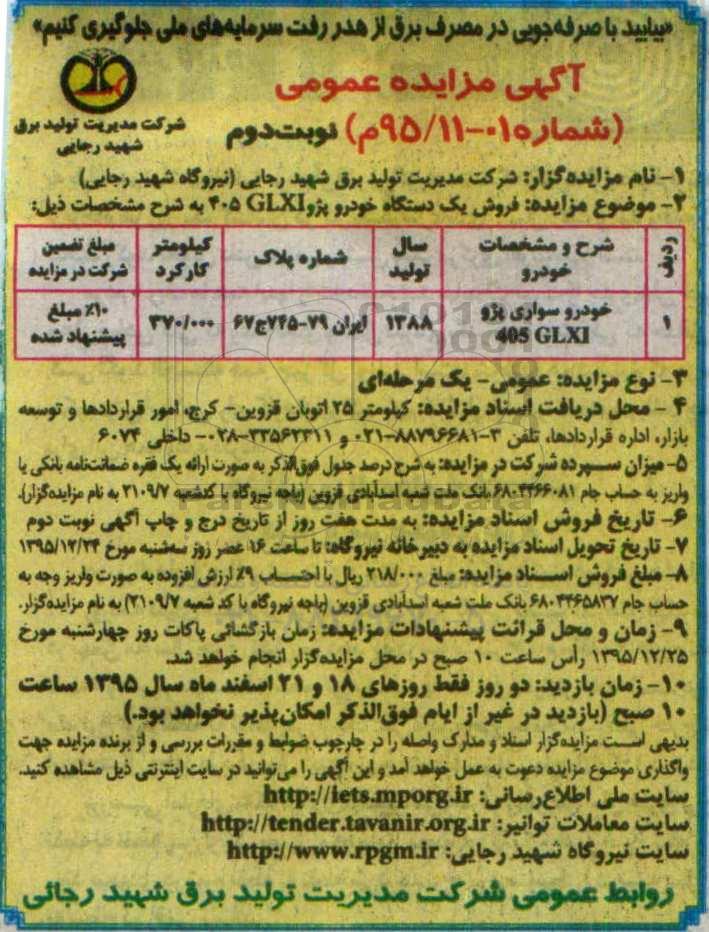 «بیایید با صرفه‌جویی در مصرف برق از هدر رفت سرمایه‌های ملی جلوگیری کنیم»
آگهی مزایده عمومی
(شماره ۰۱-۹۵/۱۱م) نوبت دوم
شرکت مدیریت تولید برق
شهید رجایی
۱- نام مزایده‌گزار: شرکت مدیریت تولید برق شهید رجایی (نیروگاه شهید رجایی)
۲- موضوع مزایده: فروش یک دستگاه خودرو پژو ۴۰۵ GLXI به شرح مشخصات ذیل:
ردیف | شرح و مشخصات خودرو | سال تولید | شماره پلاک | کیلومتر کارکرد | مبلغ تضمین شرکت در مزایده
۱ | خودرو سواری پژو 405 GLXI | ۱۳۸۸ | ایران ۷۹-۷۴۵ج۶۷ | ۳۷۰/۰۰۰ | ۱۰٪ مبلغ پیشنهاد شده
۳- نوع مزایده: عمومی- یک مرحله‌ای
۴ - محل دریافت اسناد مزایده: کیلومتر ۲۵ اتوبان قزوین- کرج، امور قراردادها و توسعه
بازار، اداره قراردادها، تلفن ۳-۸۸۷۹۶۶۸۱-۰۲۱ و ۳۳۵۶۲۳۱۱-۰۲۸- داخلی ۶۰۷۴
۵- میزان سپرده شرکت در مزایده: به شرح درصد جدول فوق‌الذکر به صورت ارائه یک فقره ضمانت‌نامه بانکی یا
واریز به حساب جام ۶۸۰۴۴۶۶۰۸۱ بانک ملت شعبه اسدآبادی قزوین (باجه نیروگاه با کدشعبه ۲۱۰۹/۷ به نام مزایده‌گزار).
۶- تاریخ فروش اسناد مزایده: به مدت هفت روز از تاریخ درج و چاپ آگهی نوبت دوم
۷- تاریخ تحویل اسناد مزایده به دبیرخانه نیروگاه: تا ساعت ۱۶ عصر روز سه‌شنبه مورخ ۱۳۹۵/۱۲/۲۴
۸- مبلغ فروش اسناد مزایده: مبلغ ۲۱۸/۰۰۰ ریال با احتساب ۹٪ ارزش افزوده به صورت واریز وجه به
حساب جام ۶۸۰۴۴۶۵۸۳۷ بانک ملت شعبه اسدآبادی قزوین (باجه نیروگاه با کد شعبه ۲۱۰۹/۷) به نام مزایده‌گزار.
۹- زمان و محل قرائت پیشنهادات مزایده: زمان بازگشائی پاکات روز چهارشنبه مورخ
۱۳۹۵/۱۲/۲۵ رأس ساعت ۱۰ صبح در محل مزایده‌گزار انجام خواهد شد.
۱۰- زمان بازدید: دو روز فقط روزهای ۱۸ و ۲۱ اسفند ماه سال ۱۳۹۵ ساعت
۱۰ صبح (بازدید در غیر از ایام فوق‌الذکر امکان‌پذیر نخواهد بود.)
بدیهی است مزایده‌گزار اسناد و مدارک واصله را در چارچوب ضوابط و مقررات بررسی و از برنده مزایده جهت
واگذاری موضوع مزایده دعوت به عمل خواهد آمد و این آگهی را می‌توانید در سایت اینترنتی ذیل مشاهده کنید.
سایت ملی اطلاع‌رسانی: http://iets.mporg.ir
سایت معاملات توانیر: http://tender.tavanir.org.ir
سایت نیروگاه شهید رجایی: http://www.rpgm.ir
روابط عمومی شرکت مدیریت تولید برق شهید رجائی